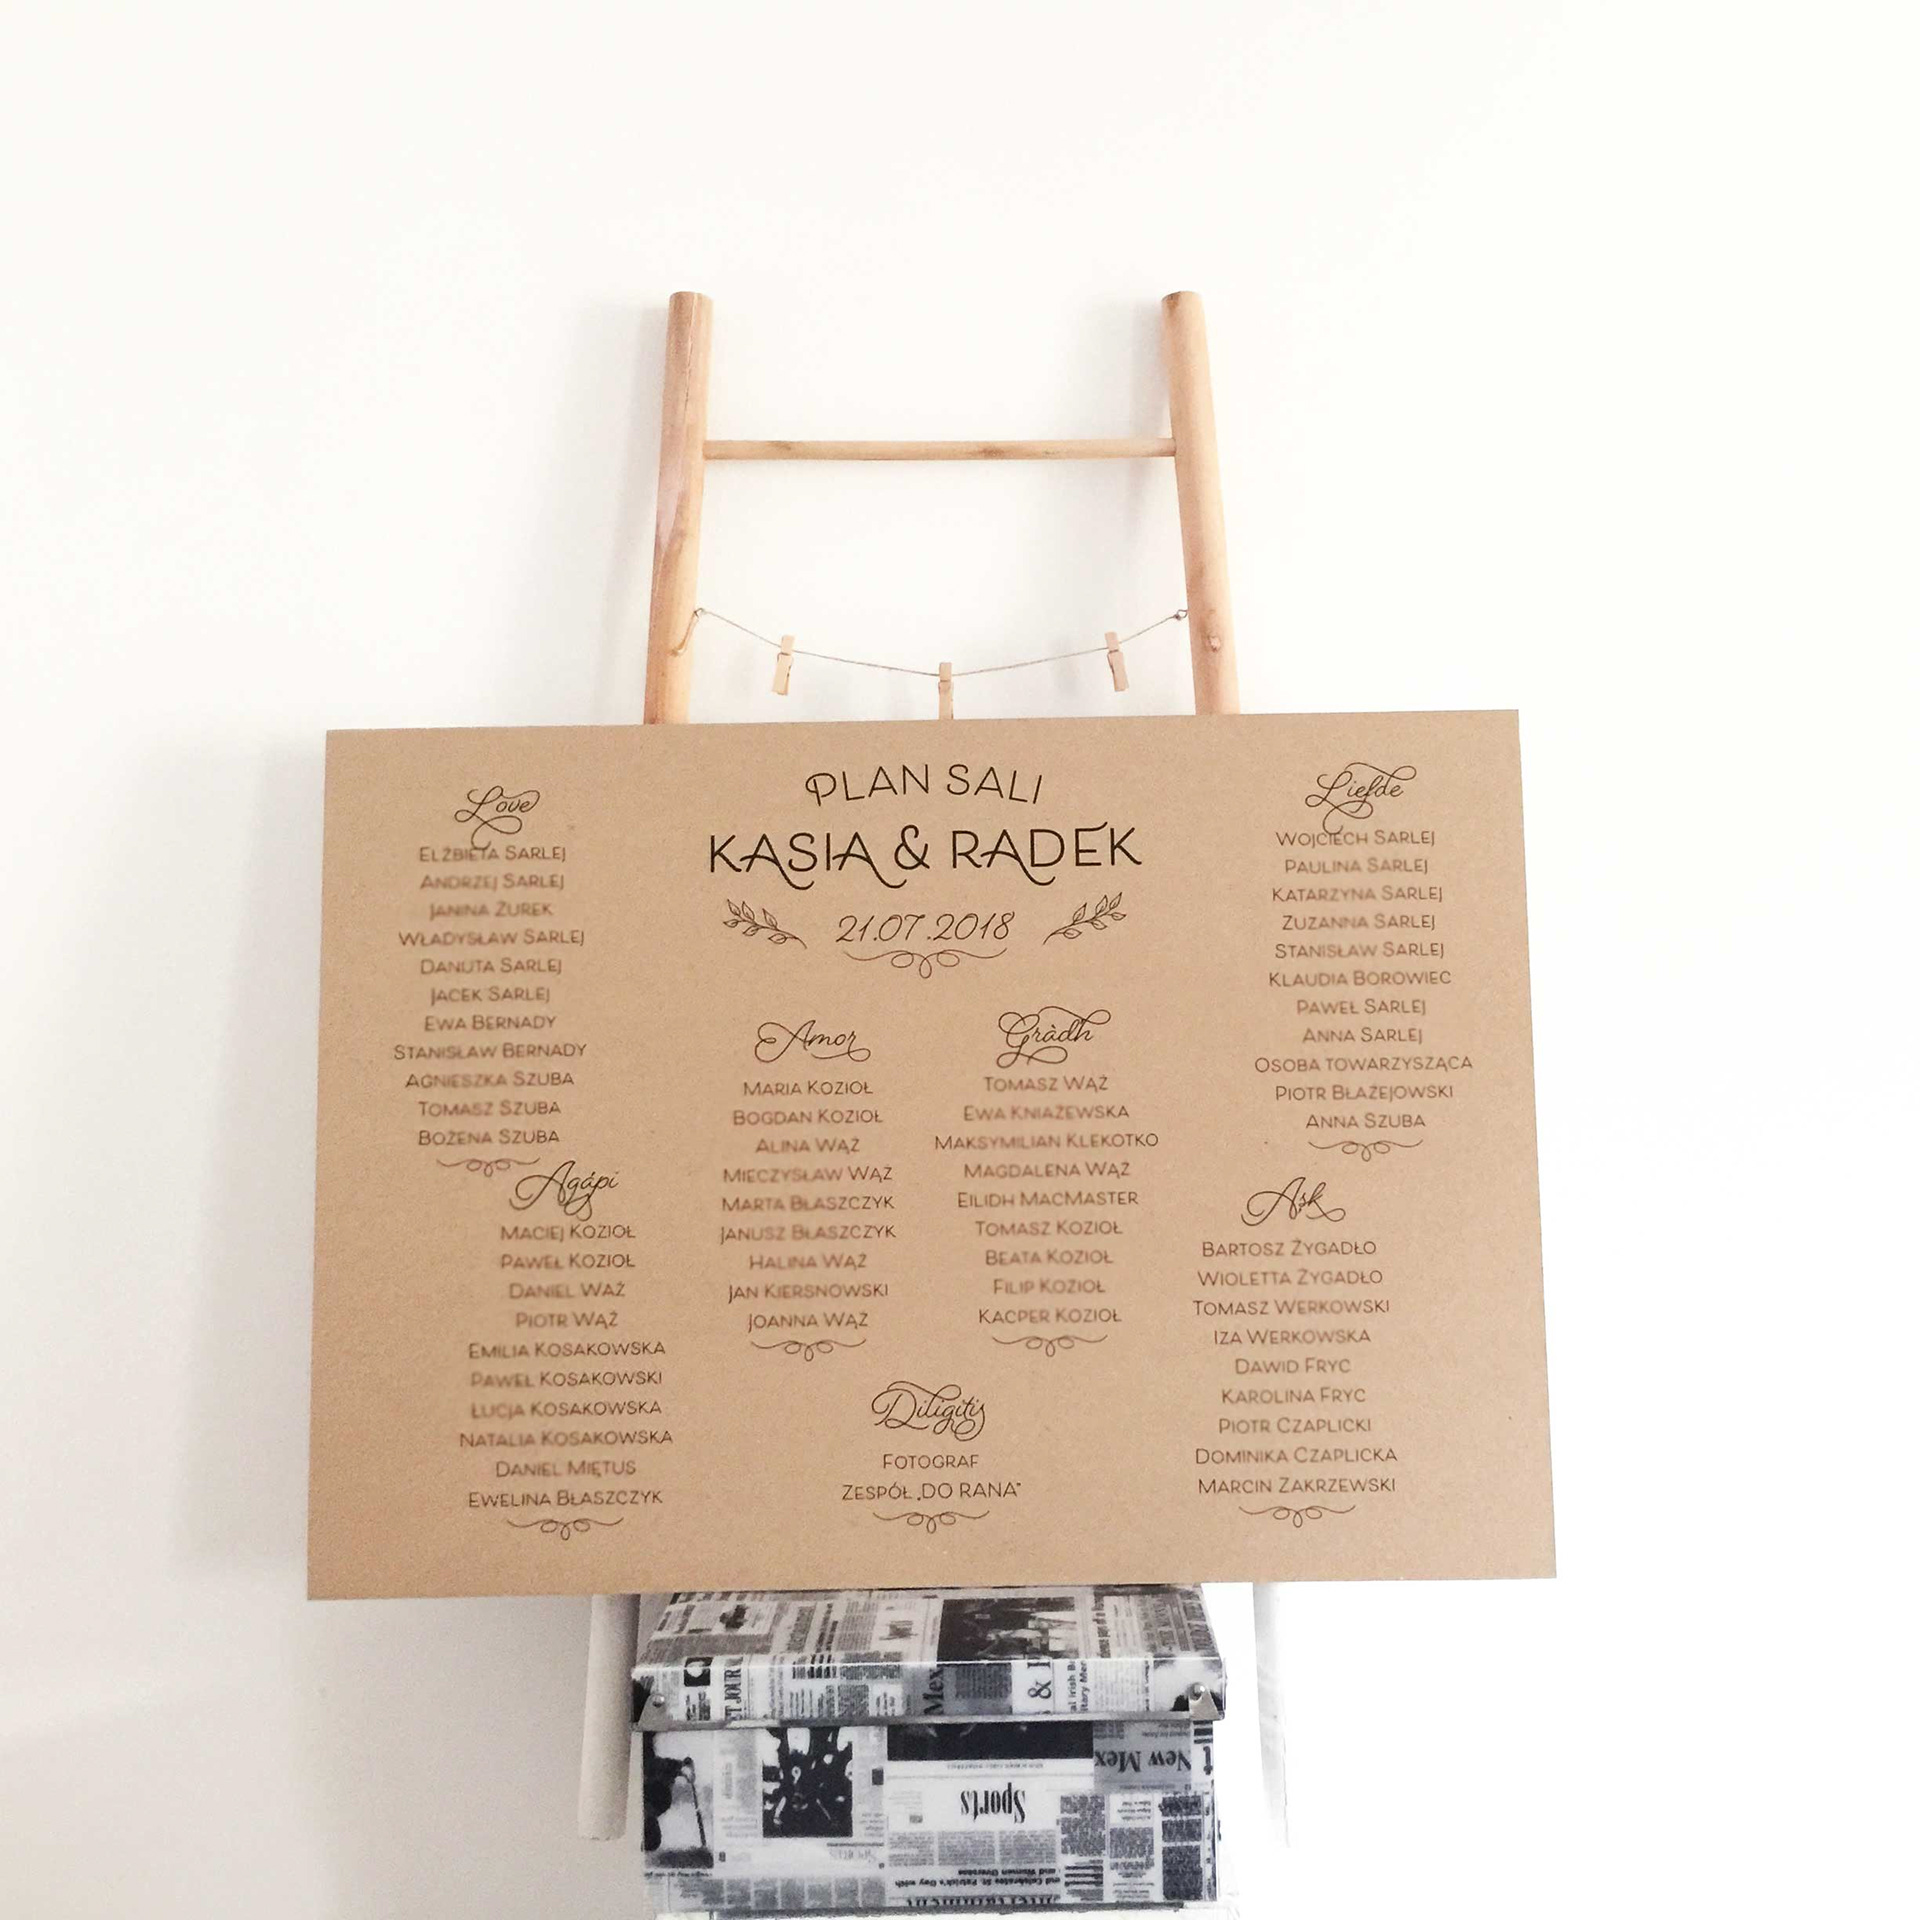 PLAN SALI
KASIA & RADEK
21.07.2018
Love
ELŻBIETA SARLEJ
ANDRZEJ SARLEJ
JANINA ŻUREK
WŁADYSŁAW SARLEJ
DANUTA SARLEJ
JACEK SARLEJ
EWA BERNADY
STANISŁAW BERNADY
AGNIESZKA SZUBA
TOMASZ SZUBA
BOŻENA SZUBA
Agápi
MACIEJ KOZIOŁ
PAWEŁ KOZIOŁ
DANIEL WĄŻ
PIOTR WĄŻ
EMILIA KOSAKOWSKA
PAWEŁ KOSAKOWSKI
ŁUCJA KOSAKOWSKA
NATALIA KOSAKOWSKA
DANIEL MIĘTUS
EWELINA BŁASZCZYK
Amor
MARIA KOZIOŁ
BOGDAN KOZIOŁ
ALINA WĄŻ
MIECZYSŁAW WĄŻ
MARTA BŁASZCZYK
JANUSZ BŁASZCZYK
HALINA WĄŻ
JAN KIERSNOWSKI
JOANNA WĄŻ
Gràdh
TOMASZ WĄŻ
EWA KNIAŻEWSKA
MAKSYMILIAN KLEKOTKO
MAGDALENA WĄŻ
EILIDH MACMASTER
TOMASZ KOZIOŁ
BEATA KOZIOŁ
FILIP KOZIOŁ
KACPER KOZIOŁ
Diligitis
FOTOGRAF
ZESPÓŁ „DO RANA"
Liefde
WOJCIECH SARLEJ
PAULINA SARLEJ
KATARZYNA SARLEJ
ZUZANNA SARLEJ
STANISŁAW SARLEJ
KLAUDIA BOROWIEC
PAWEŁ SARLEJ
ANNA SARLEJ
OSOBA TOWARZYSZĄCA
PIOTR BŁAŻEJOWSKI
ANNA SZUBA
Aşk
BARTOSZ ŻYGADŁO
WIOLETTA ŻYGADŁO
TOMASZ WERKOWSKI
IZA WERKOWSKA
DAWID FRYC
KAROLINA FRYC
PIOTR CZAPLICKI
DOMINIKA CZAPLICKA
MARCIN ZAKRZEWSKI
Mex
&
New Mex
Sports